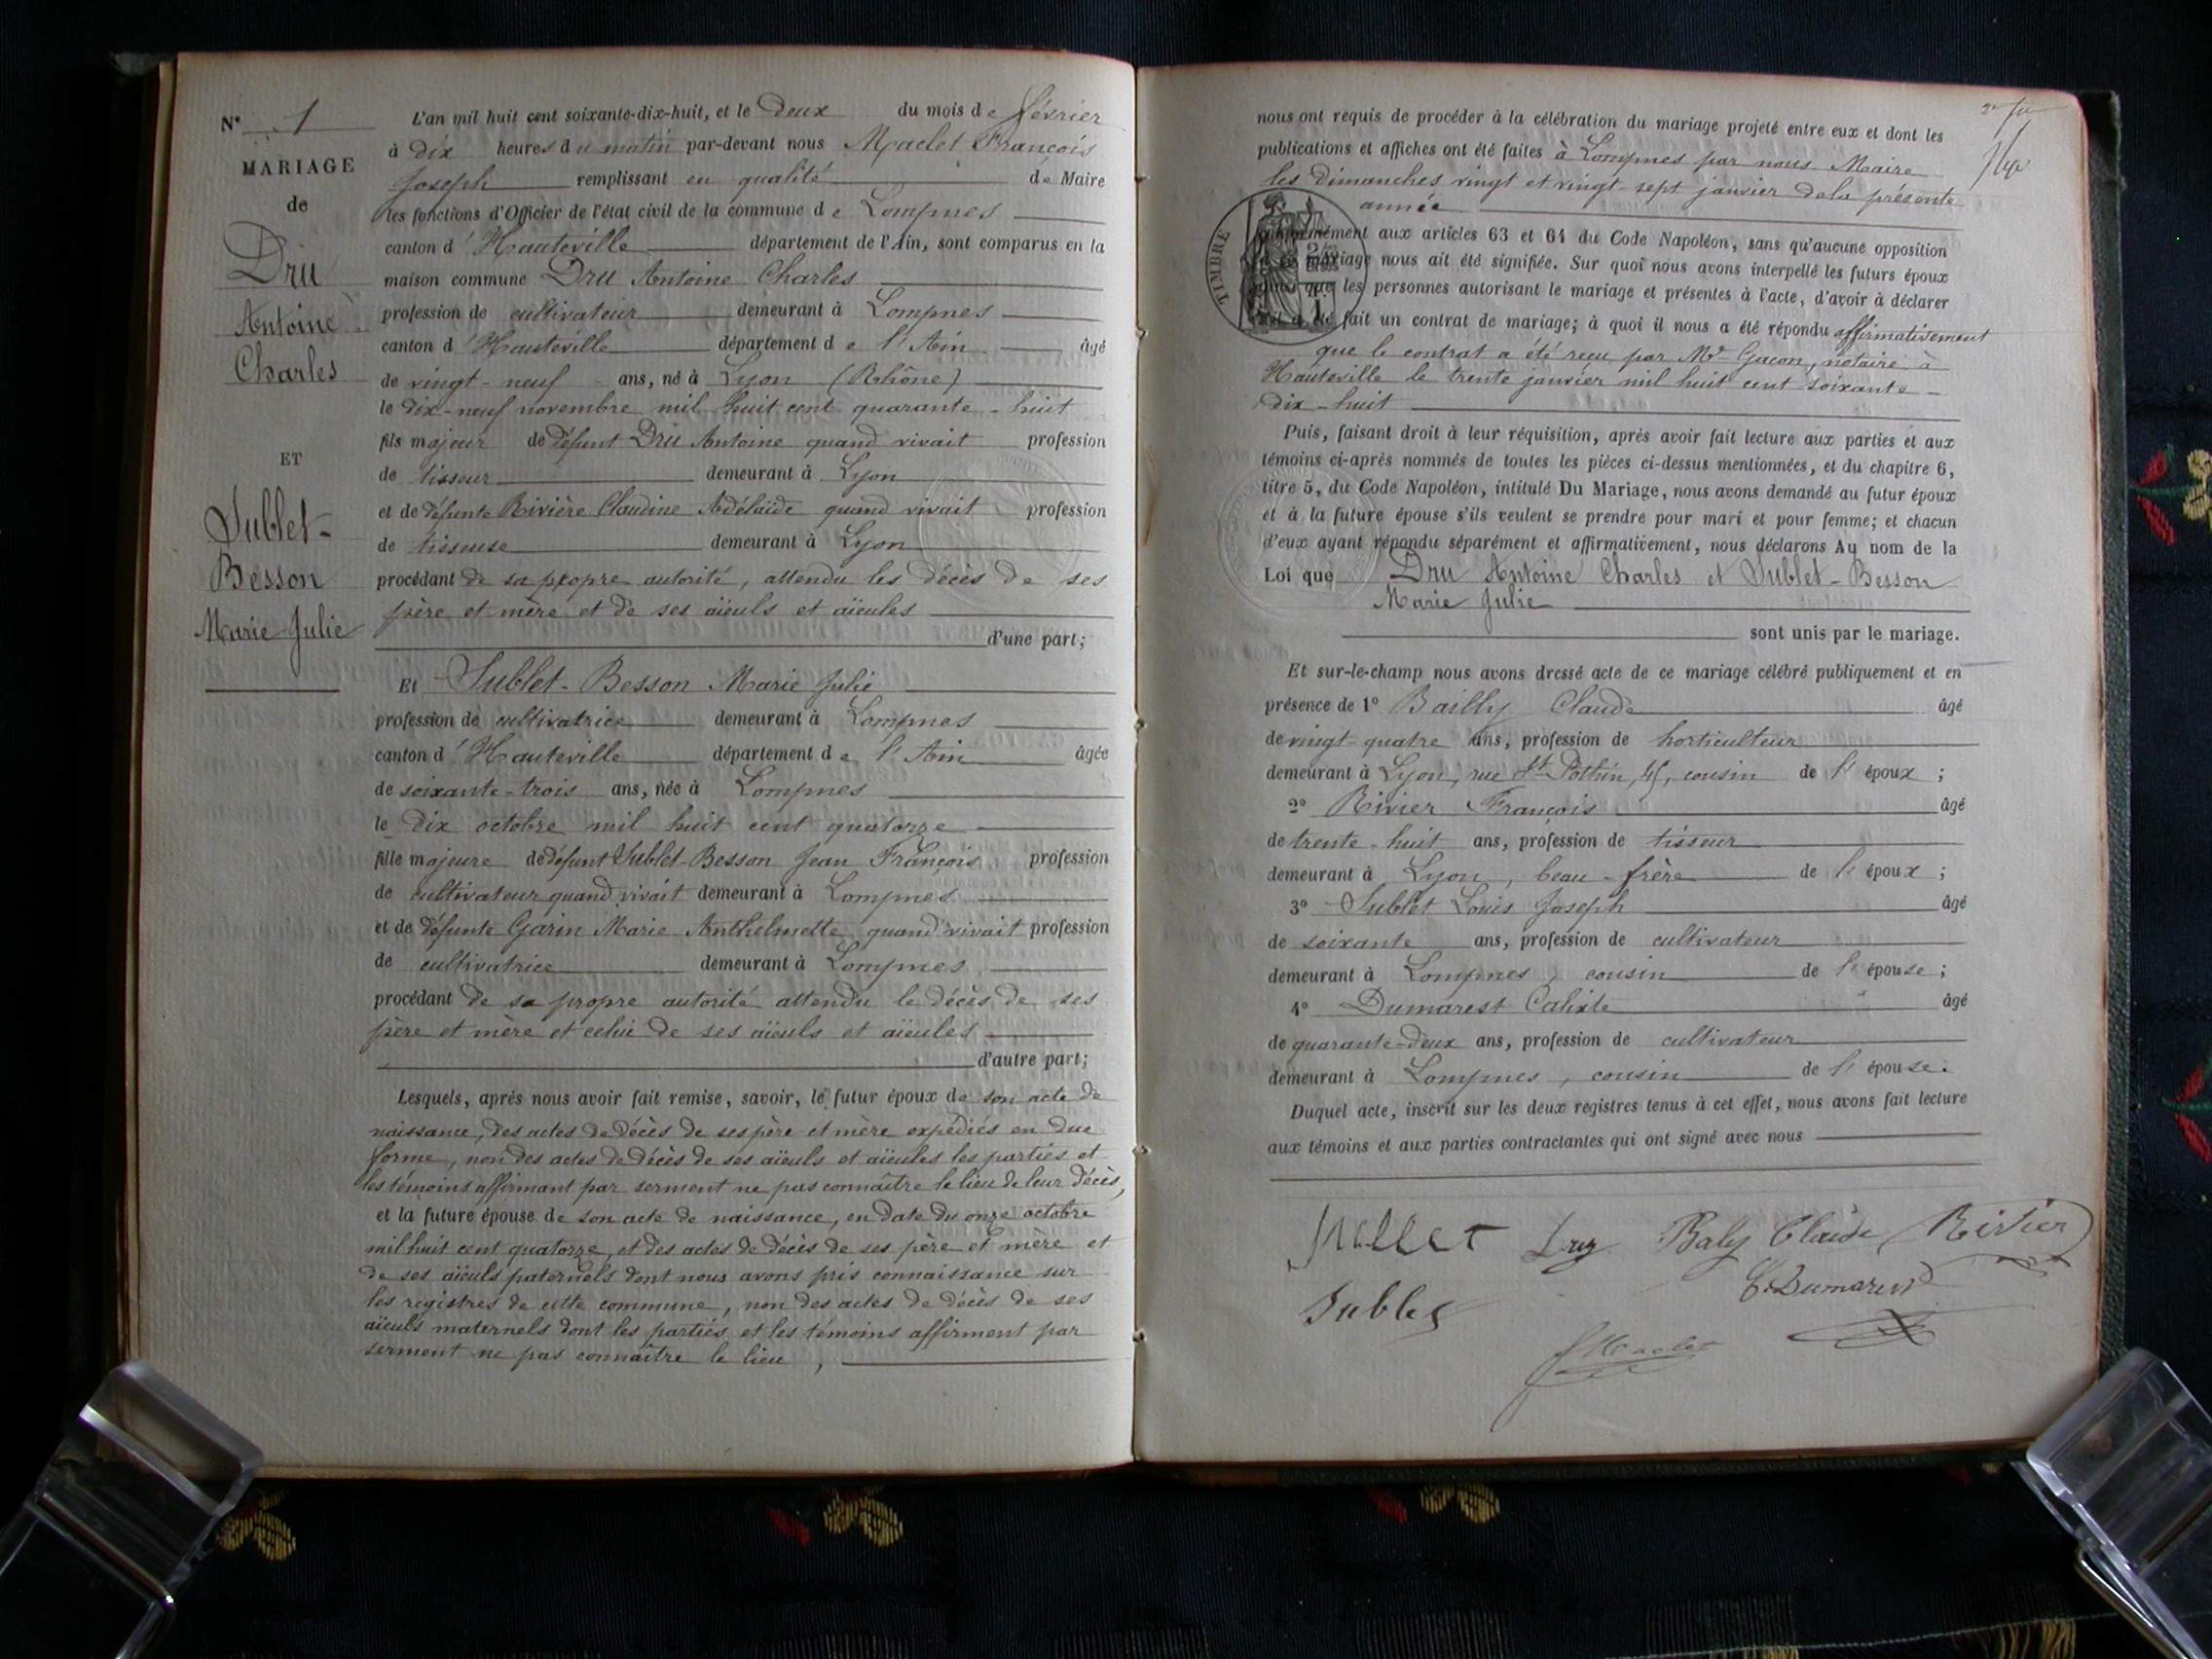 N° 1
MARIAGE
de
Dru
Antoine
Charles
ET
Sublet-
Besson
Marie Julie
L'an mil huit cent soixante-dix-huit, et le deux du mois de février
à dix heures du matin par-devant nous Maclet François
Joseph remplissant en qualité de Maire
les fonctions d'Officier de l'état civil de la commune de Lompnes
canton d'Hauteville département de l'Ain, sont comparus en la
maison commune Dru Antoine Charles
profession de cultivateur demeurant à Lompnes
canton d'Hauteville département de l'Ain âgé
de vingt-neuf ans, né à Lyon (Rhône)
le dix-neuf novembre mil huit cent quarante-huit
fils majeur de défunt Dru Antoine quand vivait profession
de tisseur demeurant à Lyon
et de défunte Rivière Claudine Adélaïde quand vivait profession
de tisseuse demeurant à Lyon
procédant de sa propre autorité, attendu les décès de ses
père et mère et de ses aïeuls et aïeules
d'une part;
Et Sublet-Besson Marie Julie
profession de cultivatrice demeurant à Lompnes
canton d'Hauteville département de l'Ain âgée
de soixante-trois ans, née à Lompnes
le dix octobre mil huit cent quatorze
fille majeure de défunt Sublet-Besson Jean François profession
de cultivateur quand vivait demeurant à Lompnes
et de défunte Garin Marie Anthelmette quand vivait profession
de cultivatrice demeurant à Lompnes
procédant de sa propre autorité attendu le décès de ses
père et mère et celui de ses aïeuls et aïeules
d'autre part;
Lesquels, après nous avoir fait remise, savoir, le futur époux de son acte de
naissance, des actes de décès de ses père et mère expédiés en due
forme, non des actes de décès de ses aïeuls et aïeules les parties et
les témoins affirmant par serment ne pas connaître le lieu de leur décès,
et la future épouse de son acte de naissance, en date du onze octobre
mil huit cent quatorze, et des actes de décès de ses père et mère et
de ses aïeuls paternels dont nous avons pris connaissance sur
les registres de cette commune, non des actes de décès de ses
aïeuls maternels dont les parties et les témoins affirment par
serment ne pas connaître le lieu,
nous ont requis de procéder à la célébration du mariage projeté entre eux et dont les
publications et affiches ont été faites à Lompnes par nous Maire
les dimanches vingt et vingt-sept janvier de la présente
année
TIMBRE
conformément aux articles 63 et 64 du Code Napoléon, sans qu'aucune opposition
mariage nous ait été signifiée. Sur quoi nous avons interpellé les futurs époux
que les personnes autorisant le mariage et présentes à l'acte, d'avoir à déclarer
fait un contrat de mariage; à quoi il nous a été répondu affirmativement
que le contrat a été reçu par Me Gacon, notaire à
Hauteville le trente janvier mil huit cent soixante-
dix-huit
Puis, faisant droit à leur réquisition, après avoir fait lecture aux parties et aux
témoins ci-après nommés de toutes les pièces ci-dessus mentionnées, et du chapitre 6,
titre 5, du Code Napoléon, intitulé Du Mariage, nous avons demandé au futur époux
et à la future épouse s'ils veulent se prendre pour mari et pour femme; et chacun
d'eux ayant répondu séparément et affirmativement, nous déclarons Au nom de la
Loi que Dru Antoine Charles et Sublet-Besson
Marie Julie
sont unis par le mariage.
Et sur-le-champ nous avons dressé acte de ce mariage célébré publiquement et en
présence de 1° Bailly Claude âgé
de vingt-quatre ans, profession de horticulteur
demeurant à Lyon, rue St Pothin, 45, cousin de l'époux;
2° Rivier François âgé
de trente-huit ans, profession de tisseur
demeurant à Lyon, beau-frère de l'époux;
3° Sublet Louis Joseph âgé
de soixante ans, profession de cultivateur
demeurant à Lompnes, cousin de l'épouse;
4° Dumarest Calixte âgé
de quarante-deux ans, profession de cultivateur
demeurant à Lompnes, cousin de l'épouse.
Duquel acte, inscrit sur les deux registres tenus à cet effet, nous avons fait lecture
aux témoins et aux parties contractantes qui ont signé avec nous
Baly Claude Rivier
Sublet C. Dumarest
Maclet